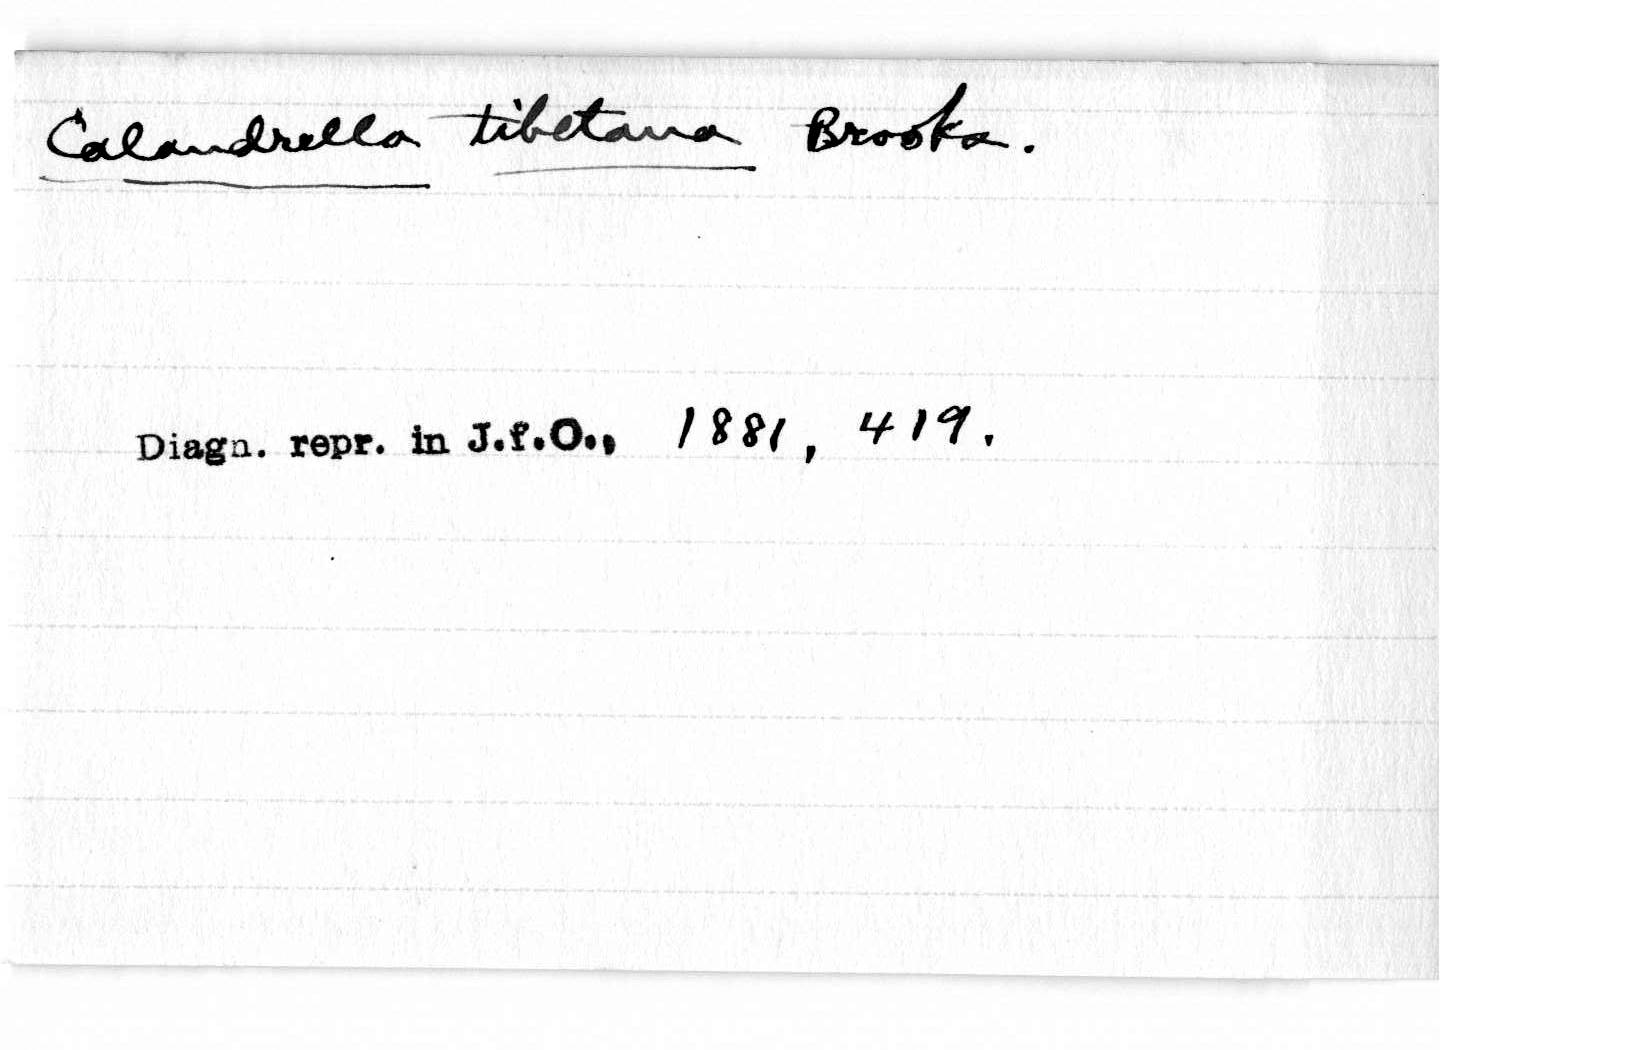 Calandrella tibetana Brooks.
Diagn. repr. in J.f.O., 1881, 419.